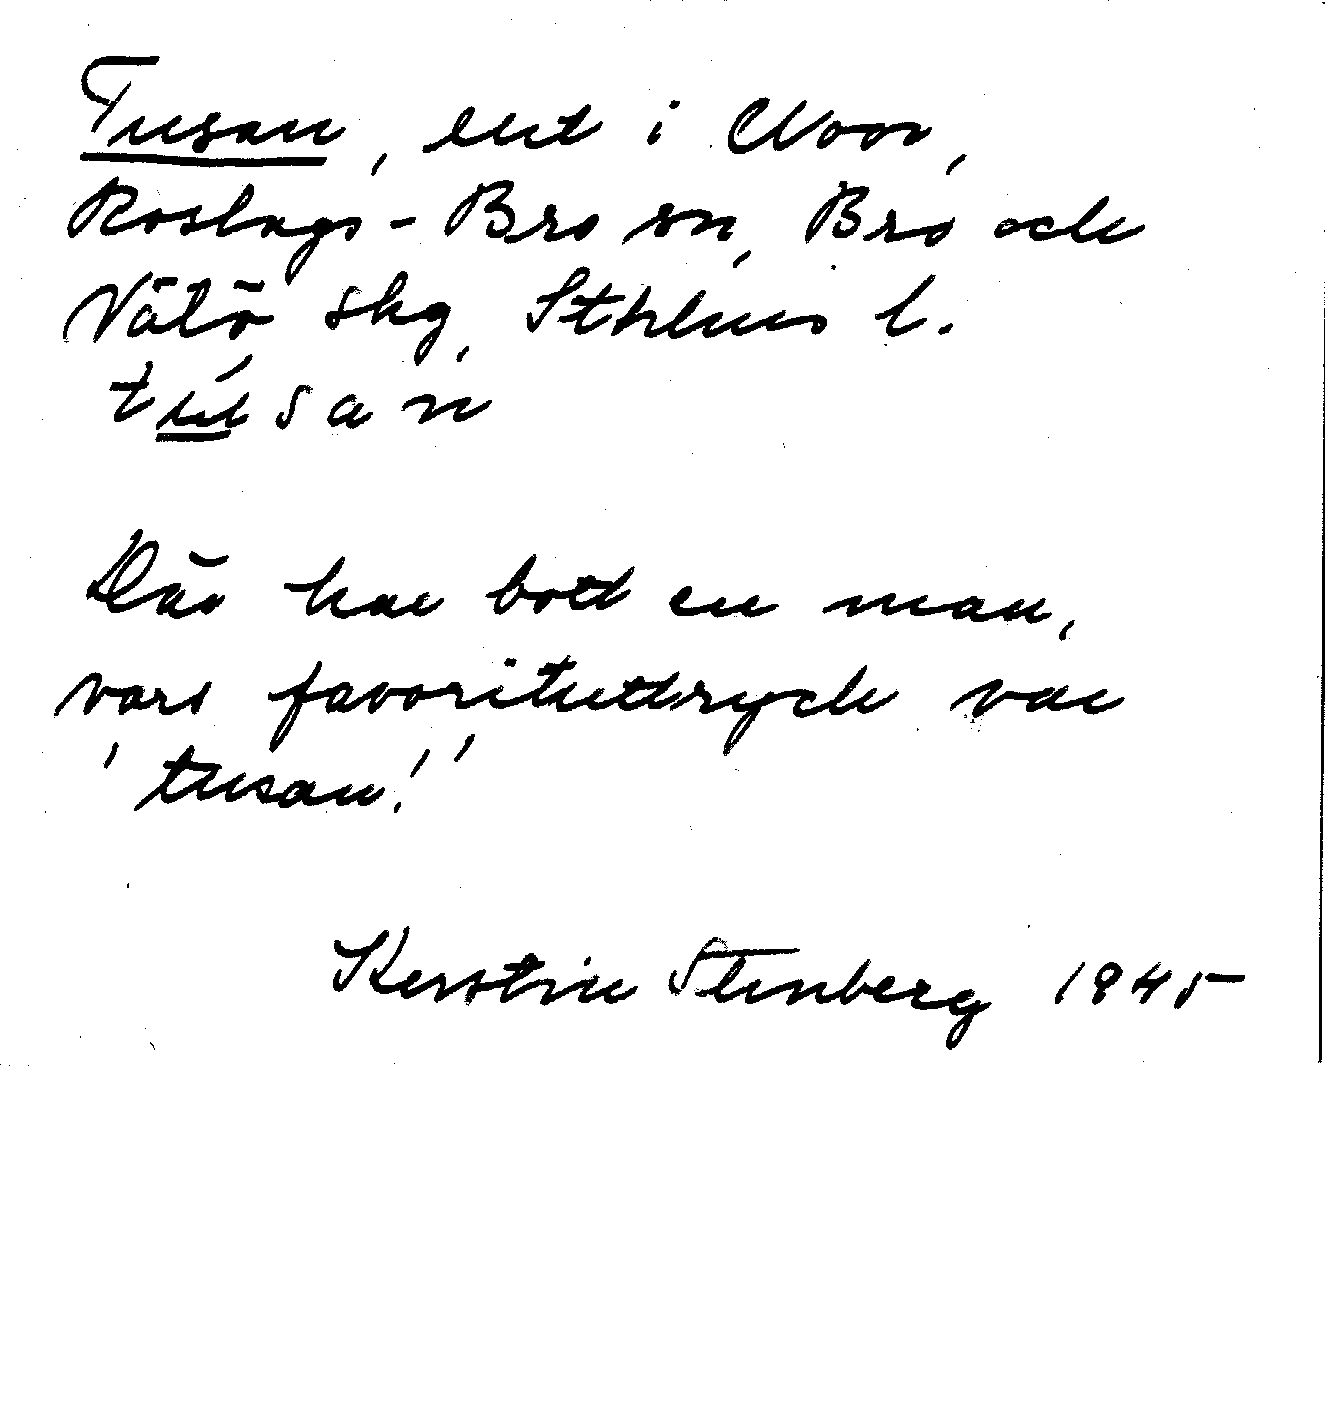 Tusan, lht i Noor,
Roslags-Bro sn, Bro och
Vätö skg, Sthlms l.
túsan
Där har bott en man,
vars favorituttryck var
'tusan!'
Kerstin Stenberg 1945